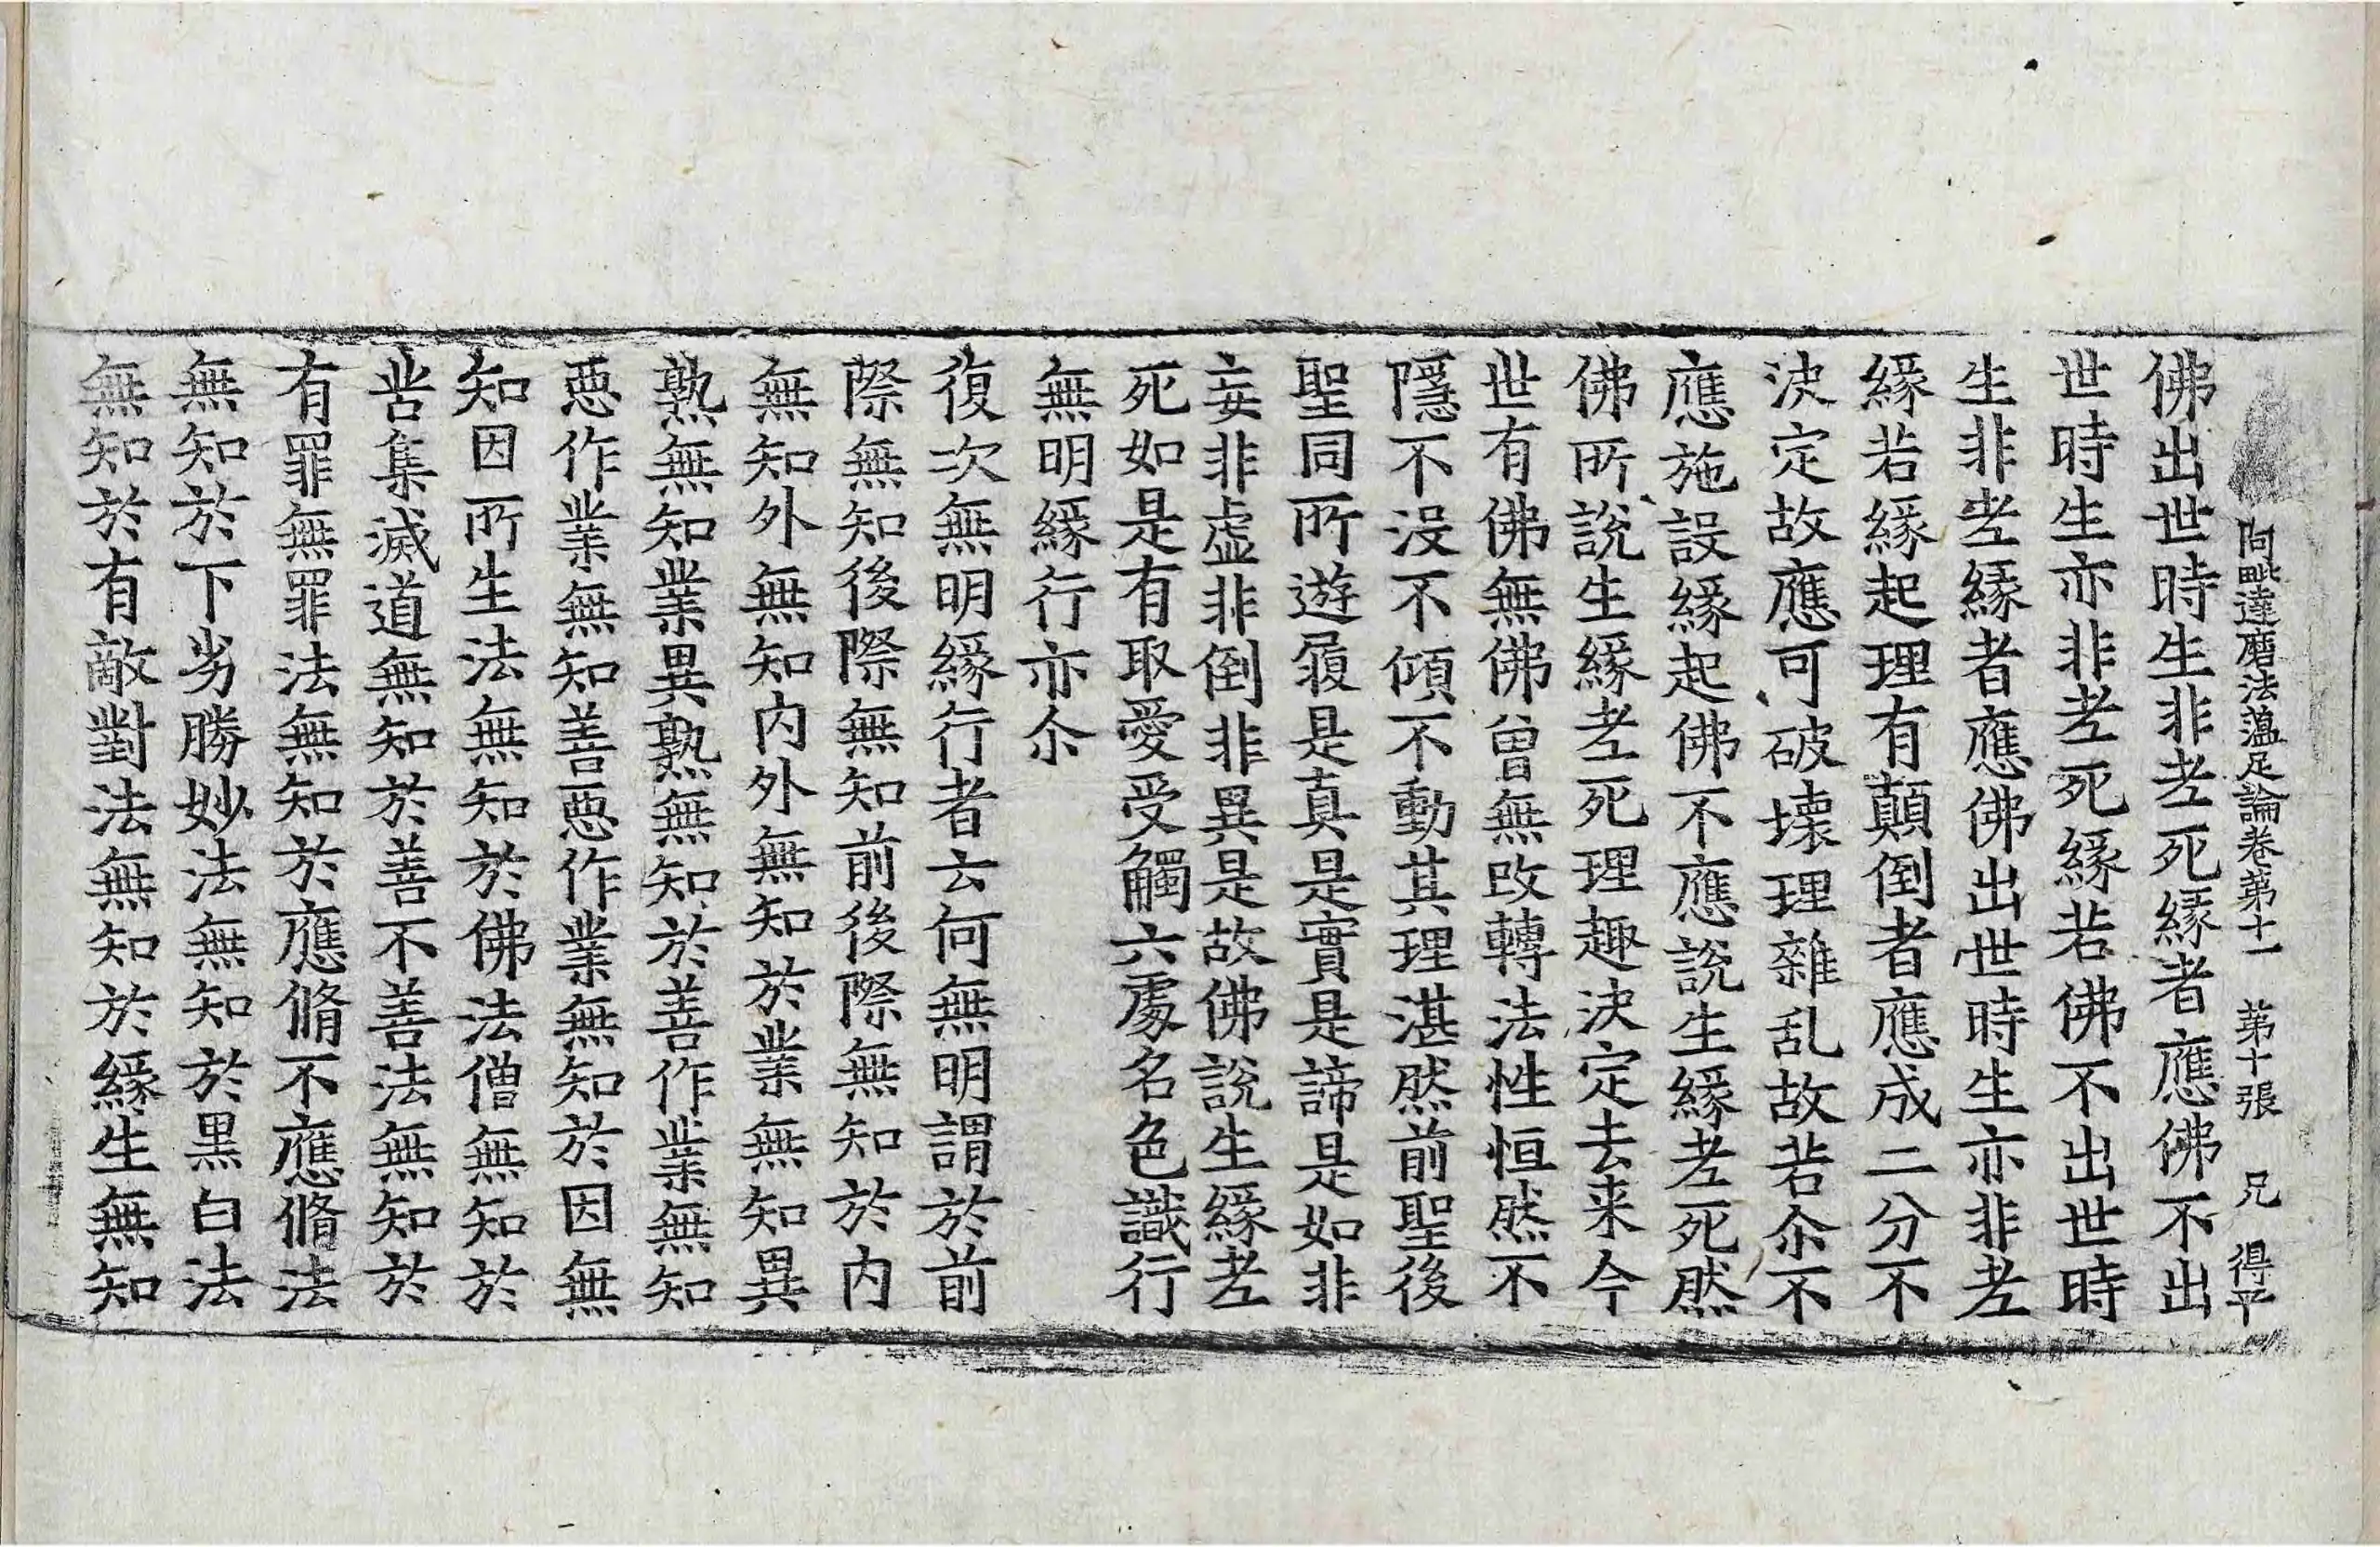 阿毗達磨法蘊足論卷第十一 第十張 兄 得平
佛出世時生非老死緣者應佛不出
世時生亦非老死緣若佛不出世時
生非老緣者應佛出世時生亦非老
緣若緣起理有顛倒者應成二分不
決定故應可破壞理雜乱故若尒不
應施設緣起佛不應說生緣老死然
佛所說生緣老死理趣決定去来今
世有佛無佛曾無改轉法性恒然不
隱不沒不傾不動其理湛然前聖後
聖同所遊履是真是實是諦是如非
妄非虛非倒非異是故佛說生緣老
死如是有取愛受觸六處名色識行
無明緣行亦尒
復次無明緣行者云何無明謂於前
際無知後際無知前後際無知於內
無知外無知內外無知於業無知異
熟無知業異熟無知於善作業無知
惡作業無知善惡作業無知於因無
知因所生法無知於佛法僧無知於
苦集滅道無知於善不善法無知於
有罪無罪法無知於應脩不應脩法
無知於下劣勝妙法無知於黒白法
無知於有敵對法無知於緣生無知